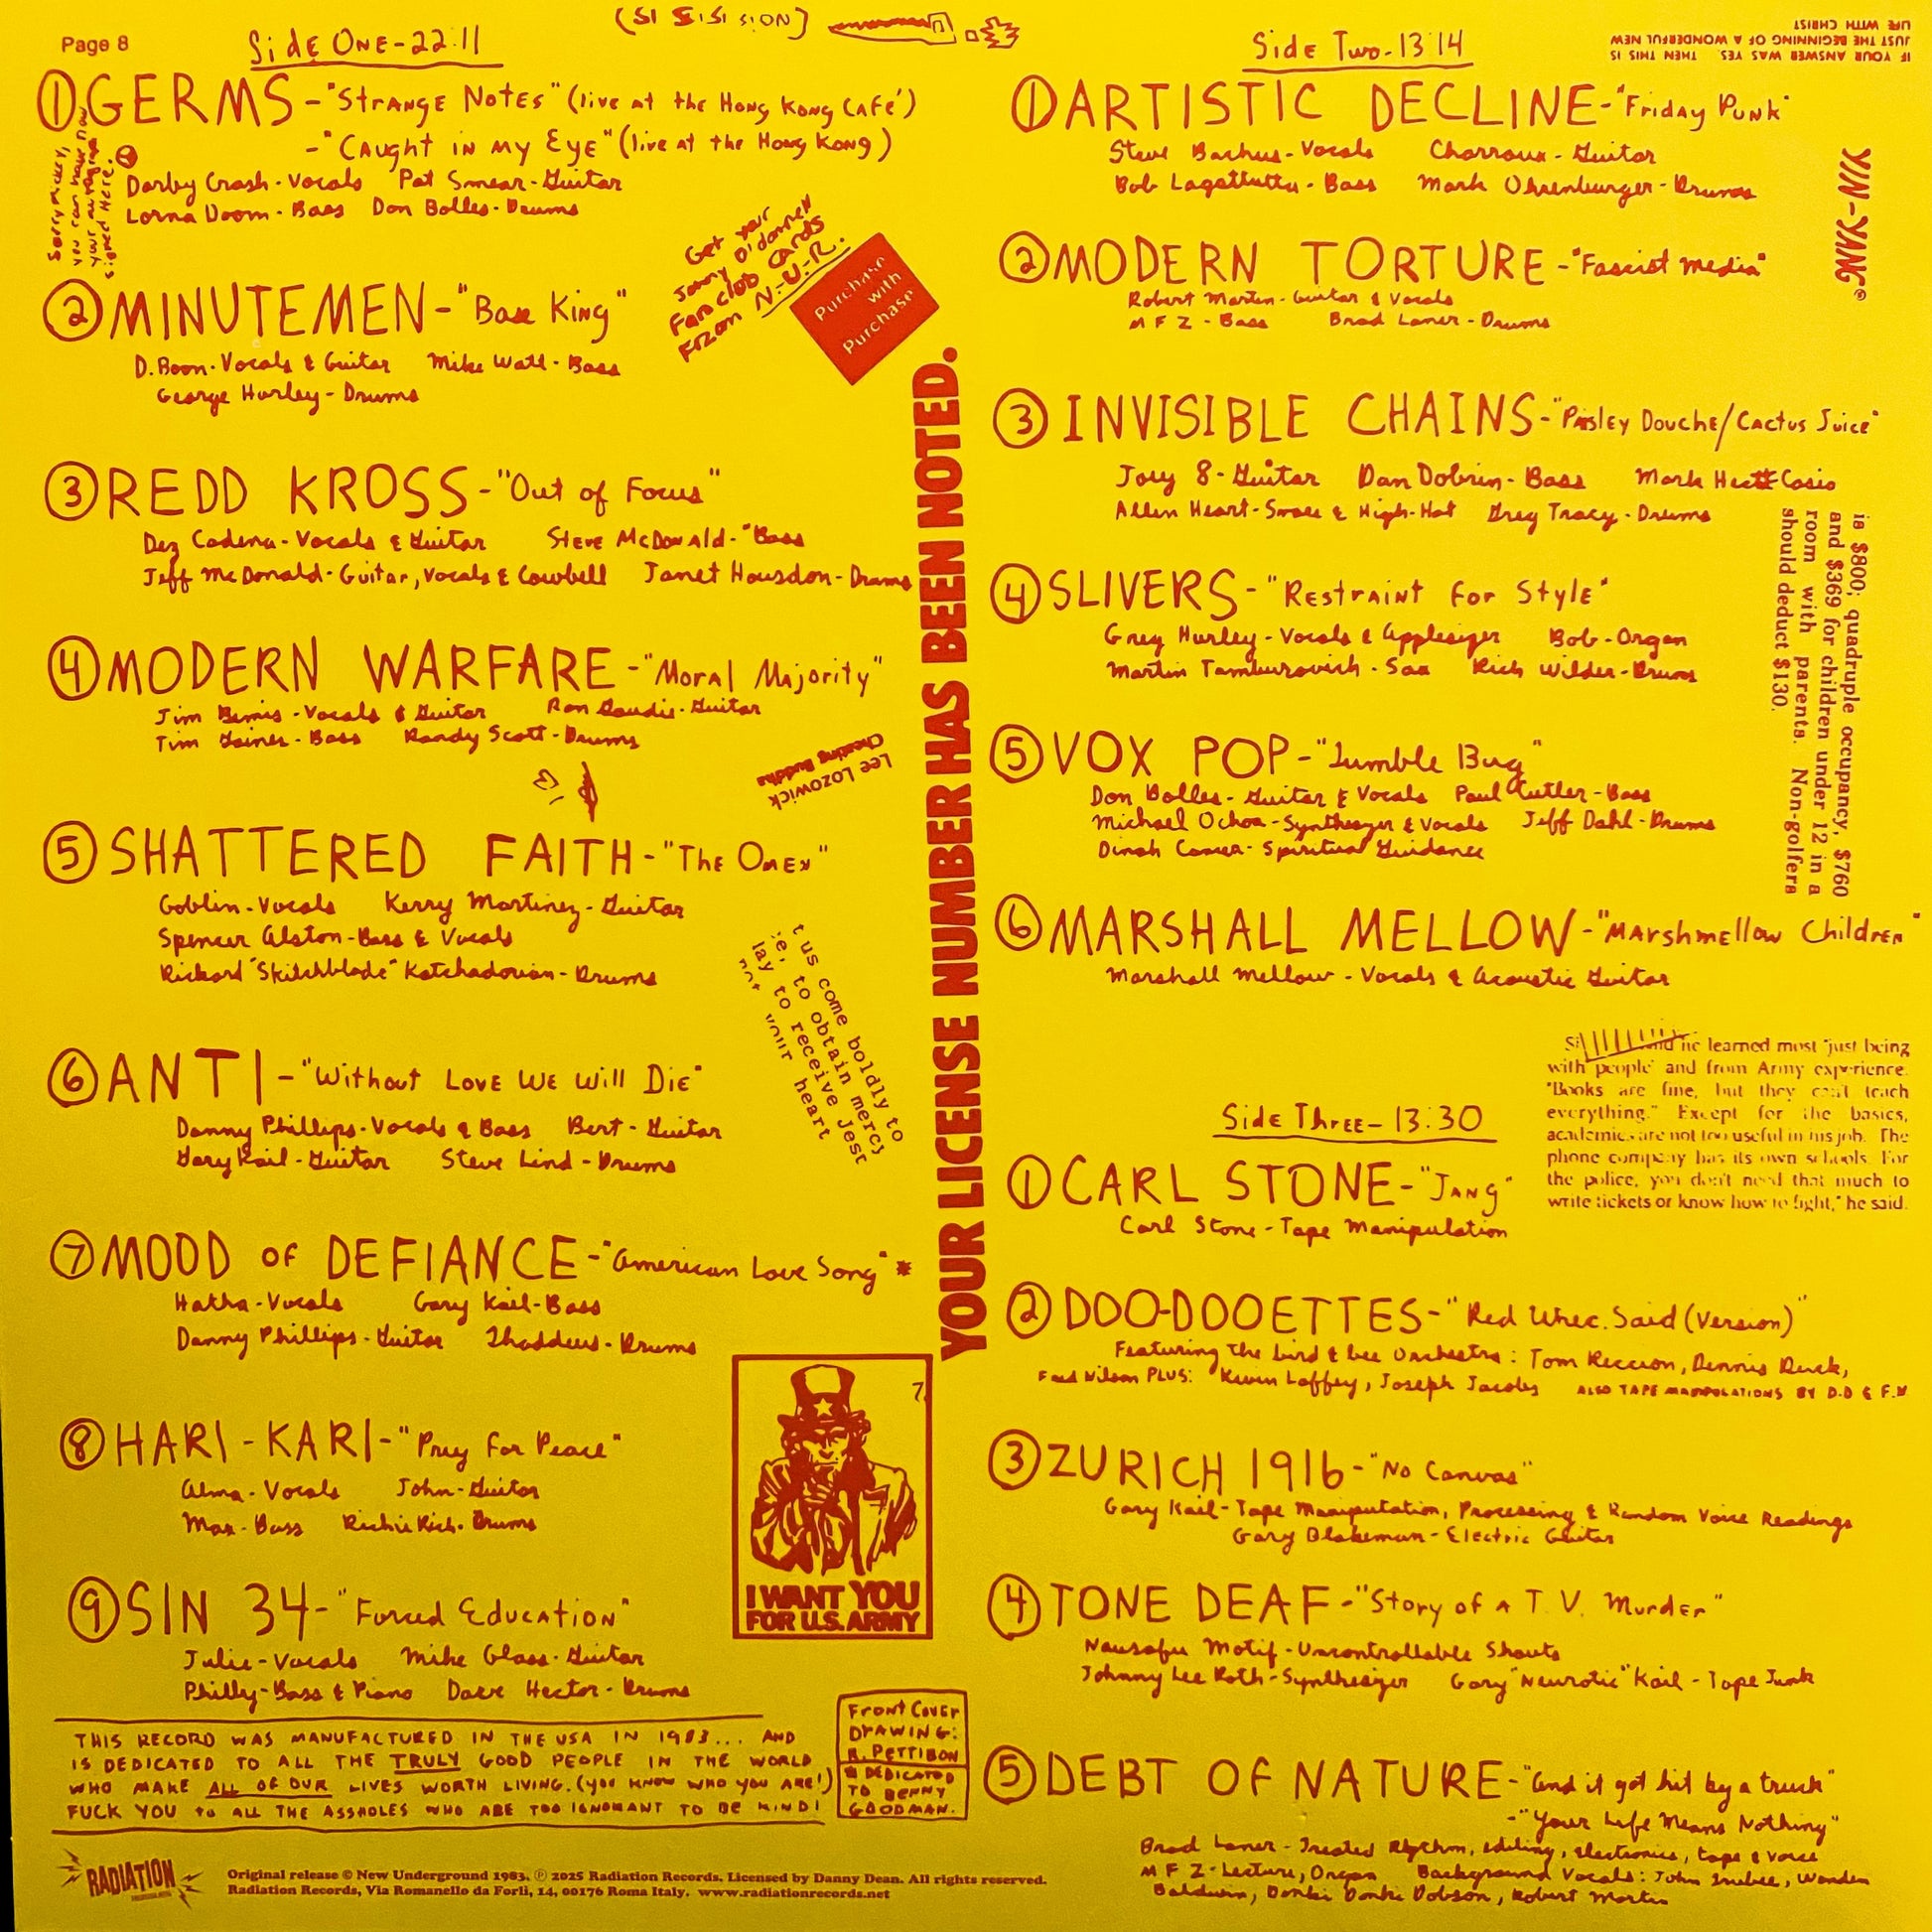 Page 8
Side One-22:11
① GERMS-"Strange Notes" (live at the Hong Kong Café)
-"Caught in my Eye" (live at the Hong Kong)
Darby Crash-Vocals Pat Smear-Guitar
Lorna Doom-Bass Don Bolles-Drums
Sorry Mickey,
you can have now
your autograph
signed Here:
② MINUTEMEN-"Base King"
D. Boon-Vocals & Guitar Mike Watt-Bass
George Hurley-Drums
Get your
Jonny O'donnell
Fan club cards
From N.-U.-R.
Purchase
with
Purchase
③ REDD KROSS-"Out of Focus"
Dez Cadena-Vocals & Guitar Steve McDonald-Bass
Jeff McDonald-Guitar, Vocals & Cowbell Janet Housdon-Drums
④ MODERN WARFARE-"Moral Majority"
Jim Bemis-Vocals & Guitar Ron Goudie-Guitar
Tim Gainer-Bass Randy Scott-Drums
Lee Lozowick
Cheating Buddha
⑤ SHATTERED FAITH-"The Omen"
Goblin-Vocals Kerry Martinez-Guitar
Spencer Alston-Bass & Vocals
Rickard "Skitchblade" Katchadorian-Drums
t us come boldly to
e, to obtain mercy
lay to receive Jest
your heart
⑥ ANTI-"Without Love We Will Die"
Danny Phillips-Vocals & Bass Bert-Guitar
Gary Kail-Guitar Steve Lind-Drums
⑦ MOOD of DEFIANCE-"American Love Song" *
Hatha-Vocals Gary Kail-Bass
Danny Phillips-Guitar Thaddeus-Drums
⑧ HARI-KARI-"Prey For Peace"
Alma-Vocals John-Guitar
Max-Bass Richie Rich-Drums
⑨ SIN 34-"Forced Education"
Julie-Vocals Mike Glass-Guitar
Philly-Bass & Piano Dave Hector-Drums
7
I WANT YOU
FOR U.S. ARMY
YOUR LICENSE NUMBER HAS BEEN NOTED.
THIS RECORD WAS MANUFACTURED IN THE USA IN 1983... AND
IS DEDICATED TO ALL THE TRULY GOOD PEOPLE IN THE WORLD
WHO MAKE ALL OF OUR LIVES WORTH LIVING. (YOU KNOW WHO YOU ARE!)
FUCK YOU to ALL THE ASSHOLES WHO ARE TOO IGNORANT TO BE KIND!
Front Cover
Drawing:
R. Pettibon
* DEDICATED
TO BENNY
GOODMAN.
RADIATION
Original release © New Underground 1983. ℗ 2025 Radiation Records. Licensed by Danny Dean. All rights reserved.
Radiation Records, Via Romanello da Forlì, 14, 00176 Roma Italy. www.radiationrecords.net
Side Two-13:14
IF YOUR ANSWER WAS YES, THEN THIS IS
JUST THE BEGINNING OF A WONDERFUL NEW
LIFE WITH CHRIST
① ARTISTIC DECLINE-"Friday Punk"
Steve Bachus-Vocals Charroux-Guitar
Bob Lagattutta-Bass Mark Ohrenburger-Drums
YIN-YANG®
② MODERN TORTURE-"Fascist Media"
Robert Martin-Guitar & Vocals
M F Z-Bass Brad Laner-Drums
③ INVISIBLE CHAINS-"Paisley Douche/Cactus Juice"
Joey 8-Guitar Dan Dobrin-Bass Mark Casio
Allen Heart-Snare & High-Hat Greg Tracy-Drums
is $800; quadruple occupancy, $760
and $369 for children under 12 in a
room with parents. Non-golfers
should deduct $130.
④ SLIVERS-"Restraint for Style"
Greg Hurley-Vocals & Applesizer Bob-Organ
Martin Tamburovich-Sax Rich Wilder-Drums
⑤ VOX POP-"Jumble Bug"
Don Bolles-Guitar & Vocals Paul Cutler-Bass
Michael Ochoa-Synthesizer & Vocals Jeff Dahl-Drums
Dinah Cancer-Spiritual Guidance
⑥ MARSHALL MELLOW-"Marshmellow Children"
Marshall Mellow-Vocals & Acoustic Guitar
he learned most "just being
with people" and from Army experience.
"Books are fine, but they can't teach
everything." Except for the basics,
academics are not too useful in his job. The
phone company has its own schools. For
the police, you don't need that much to
write tickets or know how to fight," he said.
Side Three-13:30
① CARL STONE-"Jang"
Carl Stone-Tape Manipulation
② DOO-DOOETTES-"Red Whec. Said (Version)"
Featuring The bird & bee Orchestra: Tom Recchion, Dennis Duck,
Fred Nilsen PLUS: Kevin Laffey, Joseph Jacobs ALSO TAPE MANIPULATIONS BY D.D & F.N
③ ZURICH 1916-"No Canvas"
Gary Kail-Tape Manipulation, Processing & Random Voice Readings
Gary Blakeman-Electric Guitar
④ TONE DEAF-"Story of a T.V. Murder"
Nausafu Motif-Uncontrollable Shouts
Johnny Lee Roth-Synthesizer Gary "Neurotic" Kail-Tape Junk
⑤ DEBT OF NATURE-"And it got hit by a truck"
-"Your Life Means Nothing"
Brad Laner-Treated Rhythm, editing, electronics, tape & voice
M F Z-Lecture, Organ Background Vocals: John Trubee, Wanden
Baldwin, Donki Donki Dobson, Robert Martin